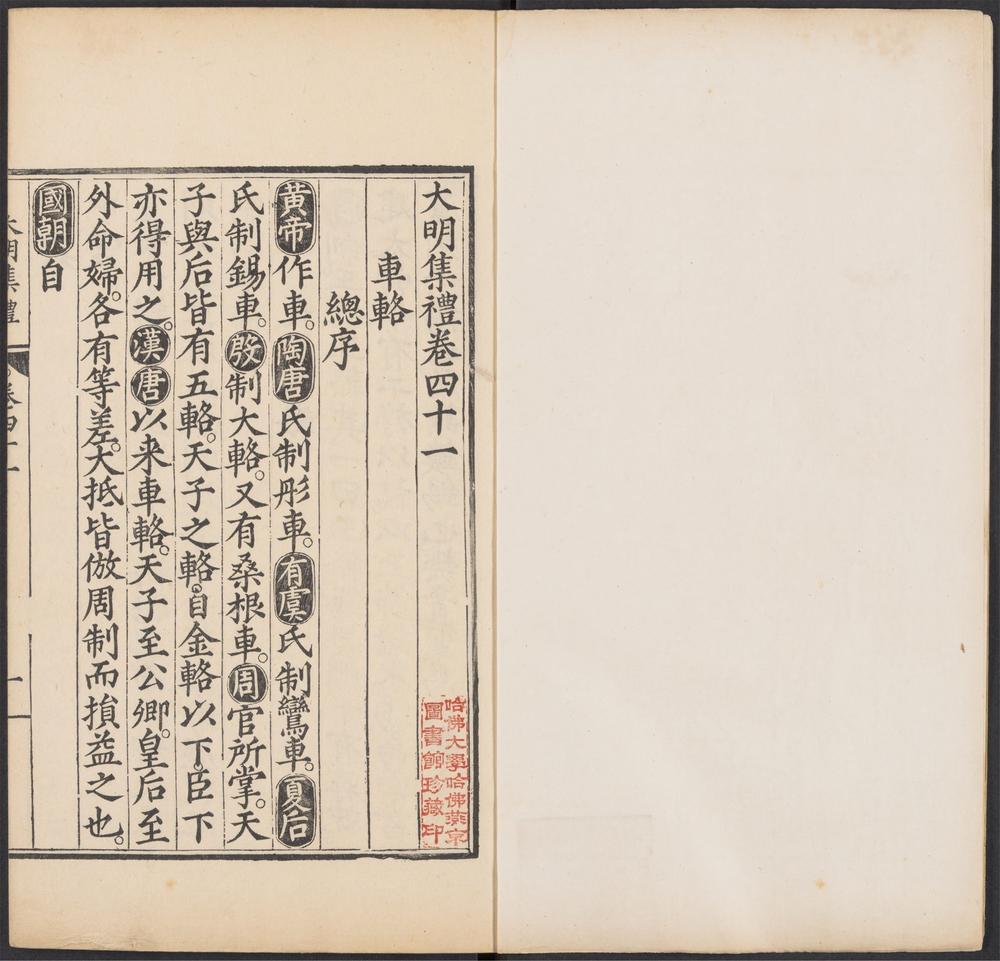 大明集禮卷四十一
車輅
總序
黃帝作車。陶唐氏制彤車。有虞氏制鸞車。夏后
氏制鍚車。殷制大輅。又有桑根車。周官所掌。天
子與后皆有五輅。天子之輅。自金輅以下。臣下
亦得用之。漢唐以来車輅。天子至公卿。皇后至
外命婦。各有等差。大抵皆倣周制而損益之也。
國朝自
大明集禮
卷四十一
一
哈佛大學哈佛燕京
圖書館珍藏印